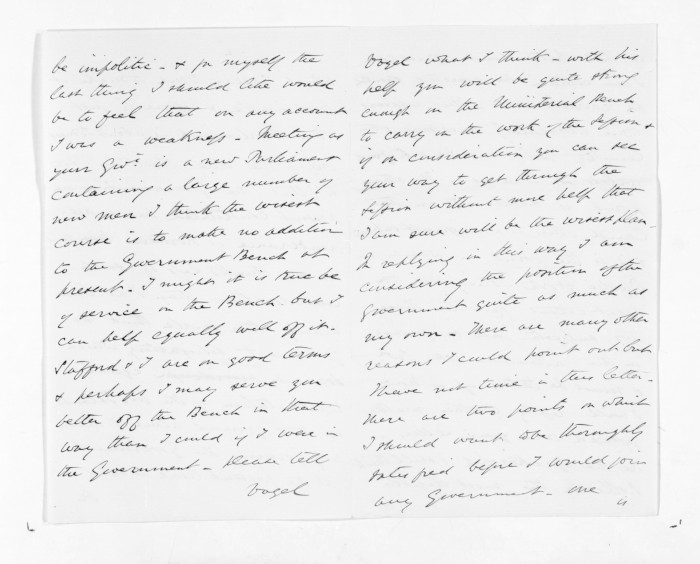 be impolitic - & for myself the
last thing I should like would
be to feel that on any account
I was a weakness - Meeting as
your Govt. is a new Parliament
containing a large number of
new men I think the wisest
course is to make no addition
to the Government Bench at
present - I might it is true be
of service on the Bench but I
can help equally well off it -
Stafford & I are on good terms
& perhaps I may serve you
better off the Bench in that
way than I could if I were in
the Government - Please tell
Vogel
Vogel what I think - with his
help you will be quite strong
enough on the Ministerial Bench
to carry on the work of the Session &
if on consideration you can see
your way to get through the
Session without more help that
I am sure will be the wisest plan -
In replying in this way I am
considering the position of the
Government quite as much as
my own - There are many other
reasons I could point out but
I have not time in this letter -
There are two points on which
I should want to be thoroughly
satisfied before I would join
any Government - one
is